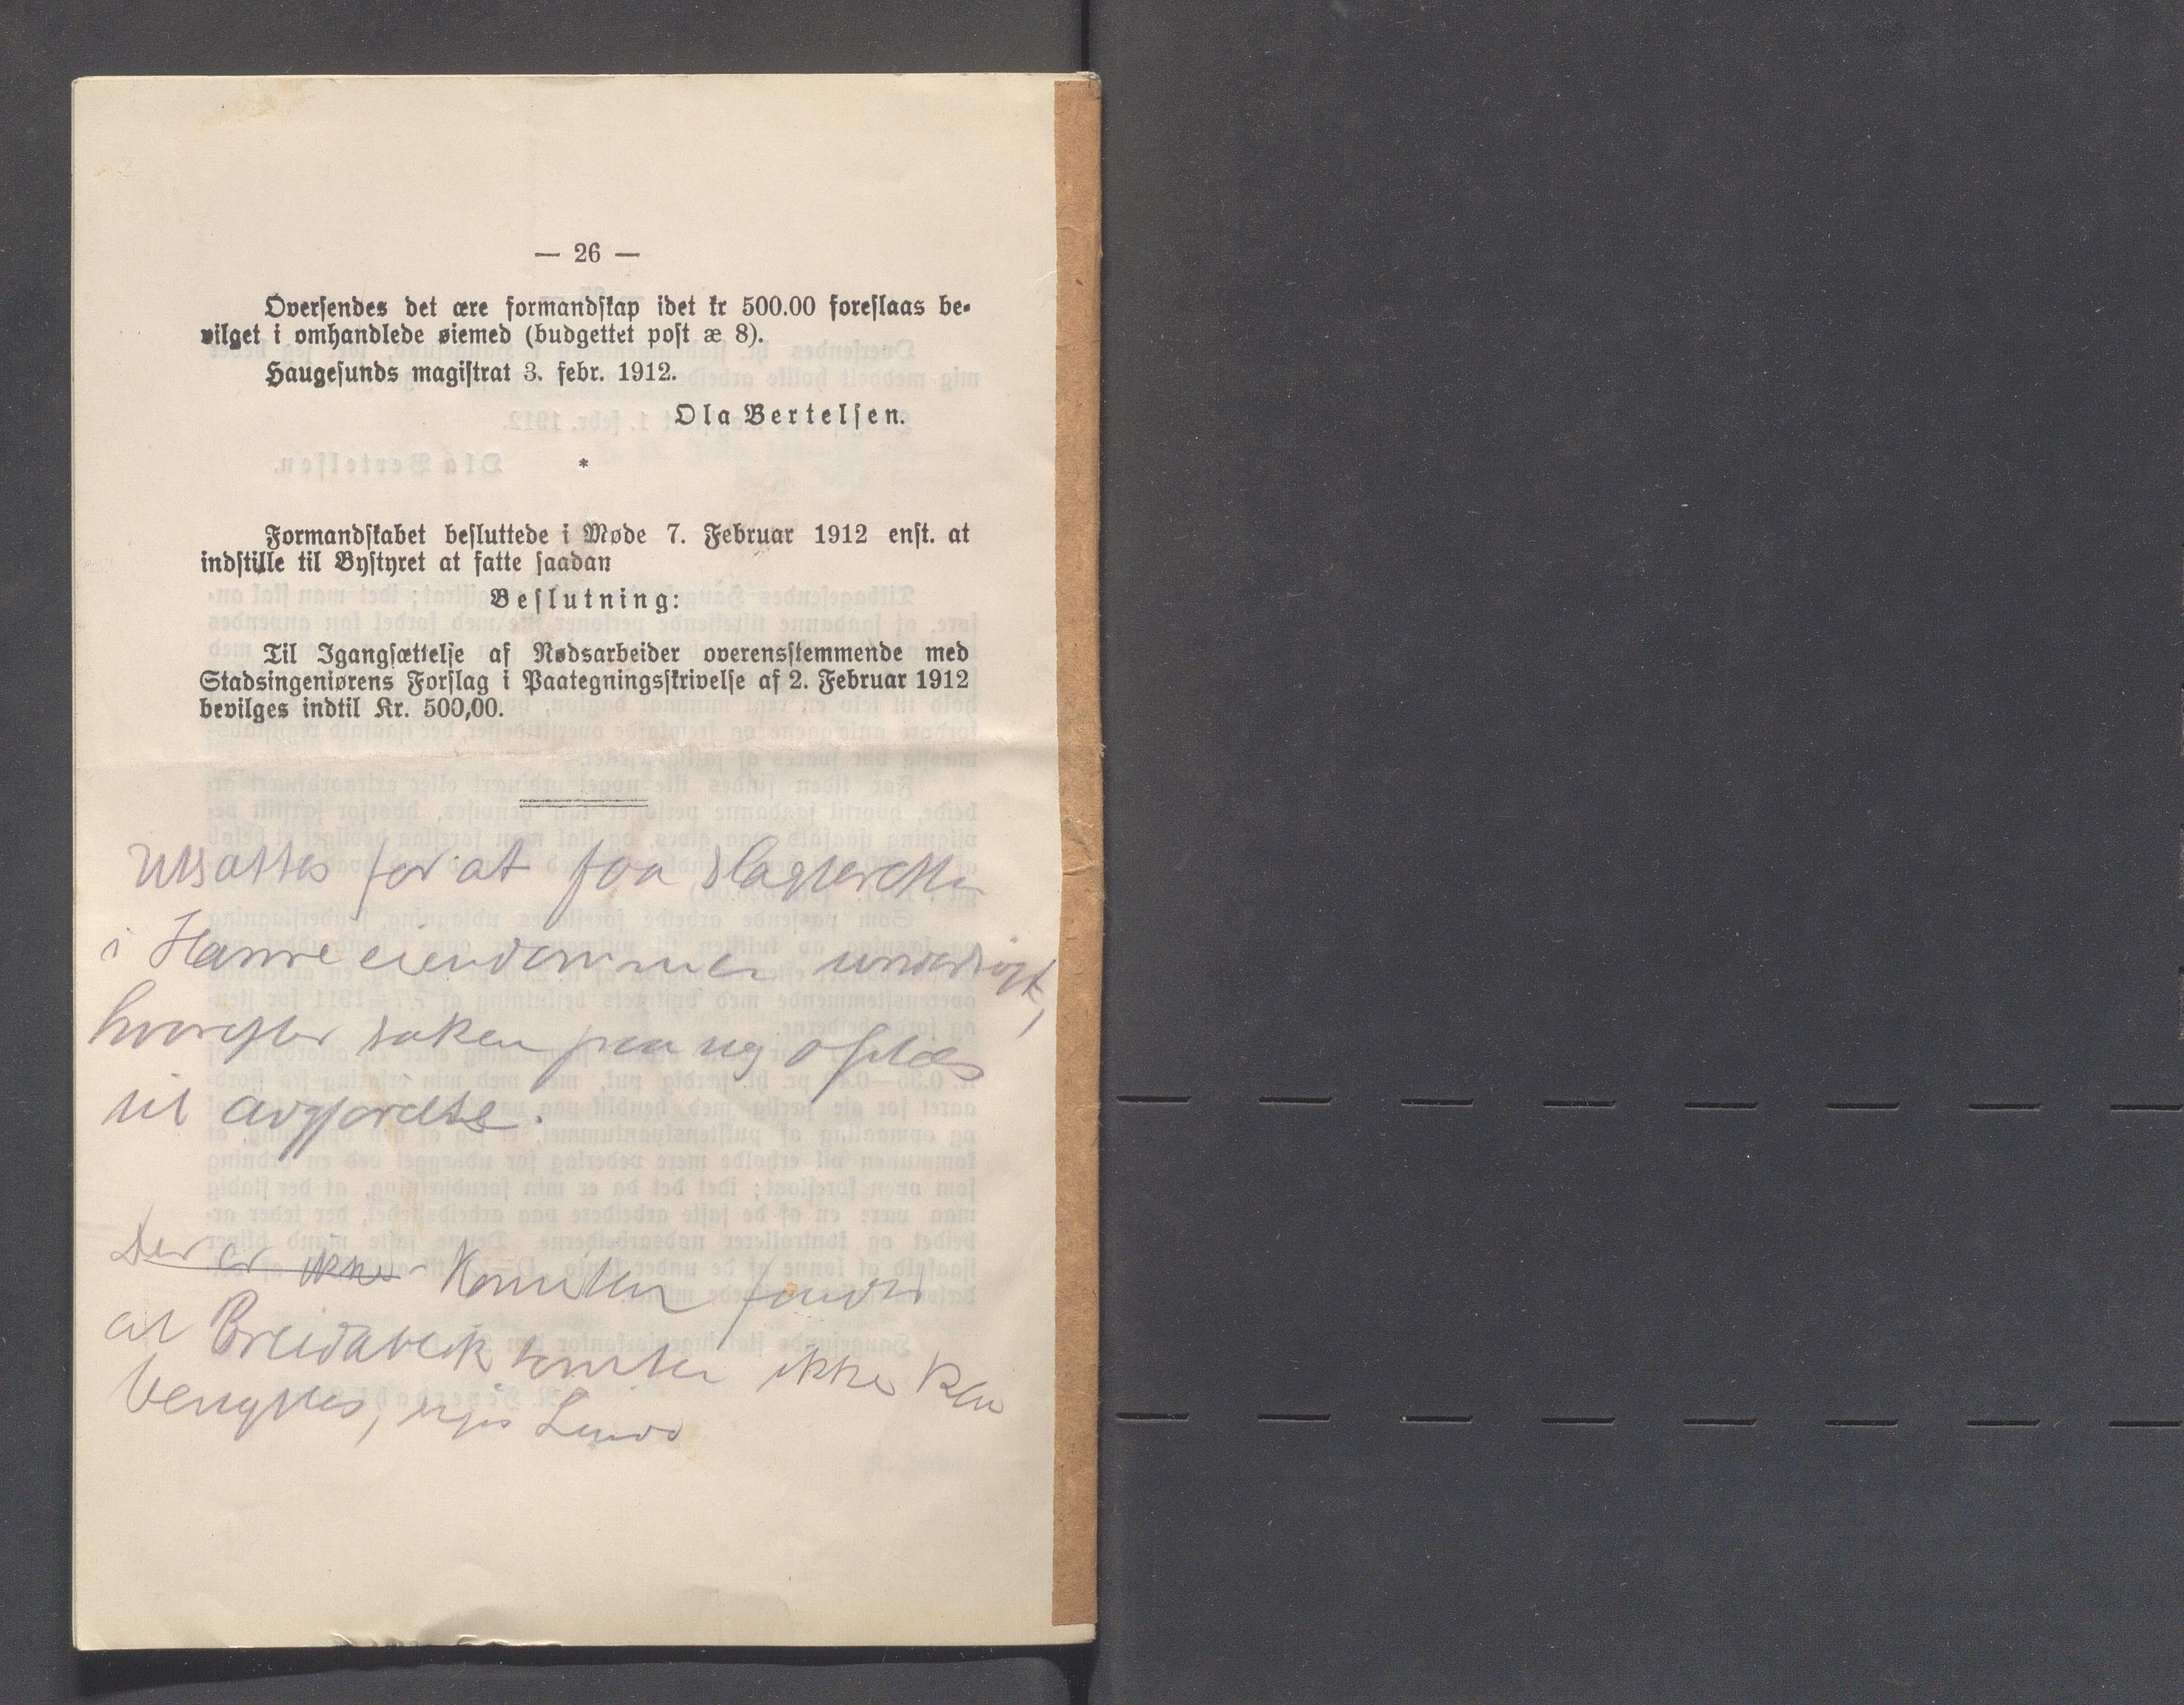 — 26 —
Oversendes det ære formandskap idet kr 500.00 foreslaas be-
vilget i omhandlede øiemed (budgettet post æ 8).
Haugesunds magistrat 3. febr. 1912.
Ola Bertelsen.
*
Formandskabet besluttede i Møde 7. Februar 1912 enst. at
indstille til Bystyret at fatte saadan
Beslutning:
Til Igangsættelse af Nødsarbeider overensstemmende med
Stadsingeniørens Forslag i Paategningsskrivelse af 2. Februar 1912
bevilges indtil Kr. 500,00.
Utsættes for at faa
i eiendommer undersøgt,
hvorefter saken paa ny
til avgjørelse.
Der er ikke Komiteen
at Breidablik tomten ikke kan
benyttes,